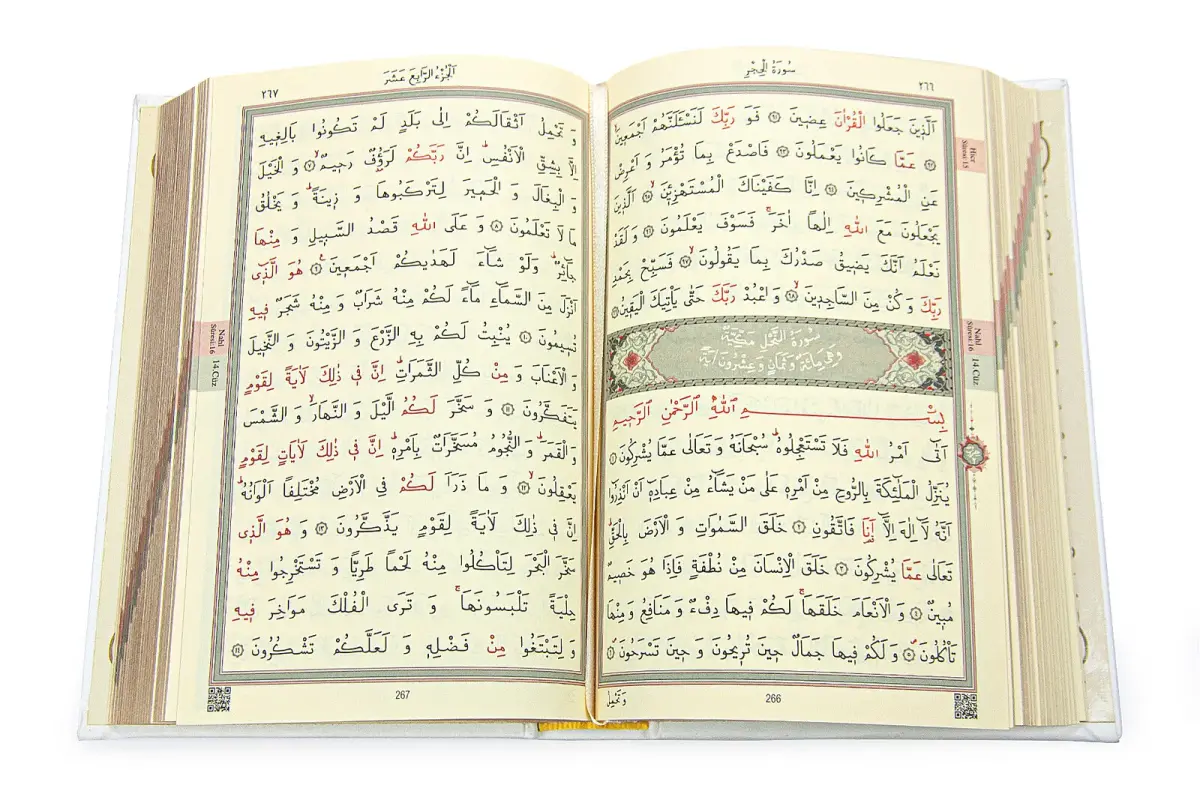 سُورَةُ الْحِجْرِ
٢٦٦
اَلَّذ۪ينَ جَعَلُوا الْقُرْاٰنَ عِض۪ينَ ﴿٩١﴾ فَوَ رَبِّكَ لَنَسْـَٔلَنَّهُمْ اَجْمَع۪ينَۙ
﴿٩٢﴾ عَمَّا كَانُوا يَعْمَلُونَ ﴿٩٣﴾ فَاصْدَعْ بِمَا تُؤْمَرُ وَ اَعْرِضْ
عَنِ الْمُشْرِك۪ينَ ﴿٩٤﴾ اِنَّا كَفَيْنَاكَ الْمُسْتَهْزِء۪ينَۙ ﴿٩٥﴾ اَلَّذ۪ينَ
يَجْعَلُونَ مَعَ اللّٰهِ اِلٰهًا اٰخَرَۚ فَسَوْفَ يَعْلَمُونَ ﴿٩٦﴾ وَ لَقَدْ
نَعْلَمُ اَنَّكَ يَض۪يقُ صَدْرُكَ بِمَا يَقُولُونَۙ ﴿٩٧﴾ فَسَبِّحْ بِحَمْدِ
رَبِّكَ وَ كُنْ مِنَ السَّاجِد۪ينَۙ ﴿٩٨﴾ وَ اعْبُدْ رَبَّكَ حَتّٰى يَاْتِيَكَ الْيَق۪ينُ ﴿٩٩﴾
سُورَةُ النَّحْلِ مَكِّيَّةٌ
وَهِيَ مِائَةٌ وَ ثَمَانٍ وَ عِشْرُونَ اٰيَةً
بِسْمِ اللّٰهِ الرَّحْمٰنِ الرَّح۪يمِ
اَتٰٓى اَمْرُ اللّٰهِ فَلَا تَسْتَعْجِلُوهُۜ سُبْحَانَهُ وَ تَعَالٰى عَمَّا يُشْرِكُونَ ﴿١﴾
يُنَزِّلُ الْمَلٰٓئِكَةَ بِالرُّوحِ مِنْ اَمْرِه۪ عَلٰى مَنْ يَشَٓاءُ مِنْ عِبَادِه۪ٓ اَنْ اَنْذِرُٓوا
اَنَّهُ لَٓا اِلٰهَ اِلَّٓا اَنَا۬ فَاتَّقُونِ ﴿٢﴾ خَلَقَ السَّمٰوَاتِ وَ الْاَرْضَ بِالْحَقِّۜ
تَعَالٰى عَمَّا يُشْرِكُونَ ﴿٣﴾ خَلَقَ الْاِنْسَانَ مِنْ نُطْفَةٍ فَاِذَا هُوَ خَص۪يمٌ
مُب۪ينٌ ﴿٤﴾ وَ الْاَنْعَامَ خَلَقَهَاۚ لَكُمْ ف۪يهَا دِفْءٌ وَ مَنَافِعُ وَ مِنْهَا
تَاْكُلُونَۖ ﴿٥﴾ وَ لَكُمْ ف۪يهَا جَمَالٌ ح۪ينَ تُر۪يحُونَ وَ ح۪ينَ تَسْرَحُونَۖ ﴿٦﴾
وَ تَحْمِلُ
266
Hicr
Sûresi:15
Nahl
Sûresi:16
14.Cüz
اَلْجُزْءُ الرَّابِعَ عَشَرَ
٢٦٧
وَ تَحْمِلُ اَثْقَالَكُمْ اِلٰى بَلَدٍ لَمْ تَكُونُوا بَالِغ۪يهِ
اِلَّا بِشِقِّ الْاَنْفُسِۜ اِنَّ رَبَّكُمْ لَرَؤُ۫فٌ رَح۪يمٌۙ ﴿٧﴾ وَ الْخَيْلَ
وَ الْبِغَالَ وَ الْحَم۪يرَ لِتَرْكَبُوهَا وَ ز۪ينَةًۜ وَ يَخْلُقُ
مَا لَا تَعْلَمُونَ ﴿٨﴾ وَ عَلَى اللّٰهِ قَصْدُ السَّب۪يلِ وَ مِنْهَا
جَٓائِرٌۜ وَلَوْ شَٓاءَ لَهَدٰيكُمْ اَجْمَع۪ينَ۟ ﴿٩﴾ هُوَ الَّذ۪ٓي
اَنْزَلَ مِنَ السَّمَٓاءِ مَٓاءً لَكُمْ مِنْهُ شَرَابٌ وَ مِنْهُ شَجَرٌ ف۪يهِ
تُس۪يمُونَ ﴿١٠﴾ يُنْبِتُ لَكُمْ بِهِ الزَّرْعَ وَ الزَّيْتُونَ وَ النَّخ۪يلَ
وَ الْاَعْنَابَ وَ مِنْ كُلِّ الثَّمَرَاتِۜ اِنَّ ف۪ي ذٰلِكَ لَاٰيَةً لِقَوْمٍ
يَتَفَكَّرُونَ ﴿١١﴾ وَ سَخَّرَ لَكُمُ الَّيْلَ وَ النَّهَارَۙ وَ الشَّمْسَ
وَ الْقَمَرَۜ وَ النُّجُومُ مُسَخَّرَاتٌ بِاَمْرِه۪ۜ اِنَّ ف۪ي ذٰلِكَ لَاٰيَاتٍ لِقَوْمٍ
يَعْقِلُونَۙ ﴿١٢﴾ وَ مَا ذَرَاَ لَكُمْ فِي الْاَرْضِ مُخْتَلِفًا اَلْوَانُهُۜ
اِنَّ ف۪ي ذٰلِكَ لَاٰيَةً لِقَوْمٍ يَذَّكَّرُونَ ﴿١٣﴾ وَ هُوَ الَّذ۪ي
سَخَّرَ الْبَحْرَ لِتَاْكُلُوا مِنْهُ لَحْمًا طَرِيًّا وَ تَسْتَخْرِجُوا مِنْهُ
حِلْيَةً تَلْبَسُونَهَاۚ وَ تَرَى الْفُلْكَ مَوَاخِرَ ف۪يهِ
وَ لِتَبْتَغُوا مِنْ فَضْلِه۪ وَ لَعَلَّكُمْ تَشْكُرُونَ ﴿١٤﴾
267
Nahl
Sûresi:16
14.Cüz